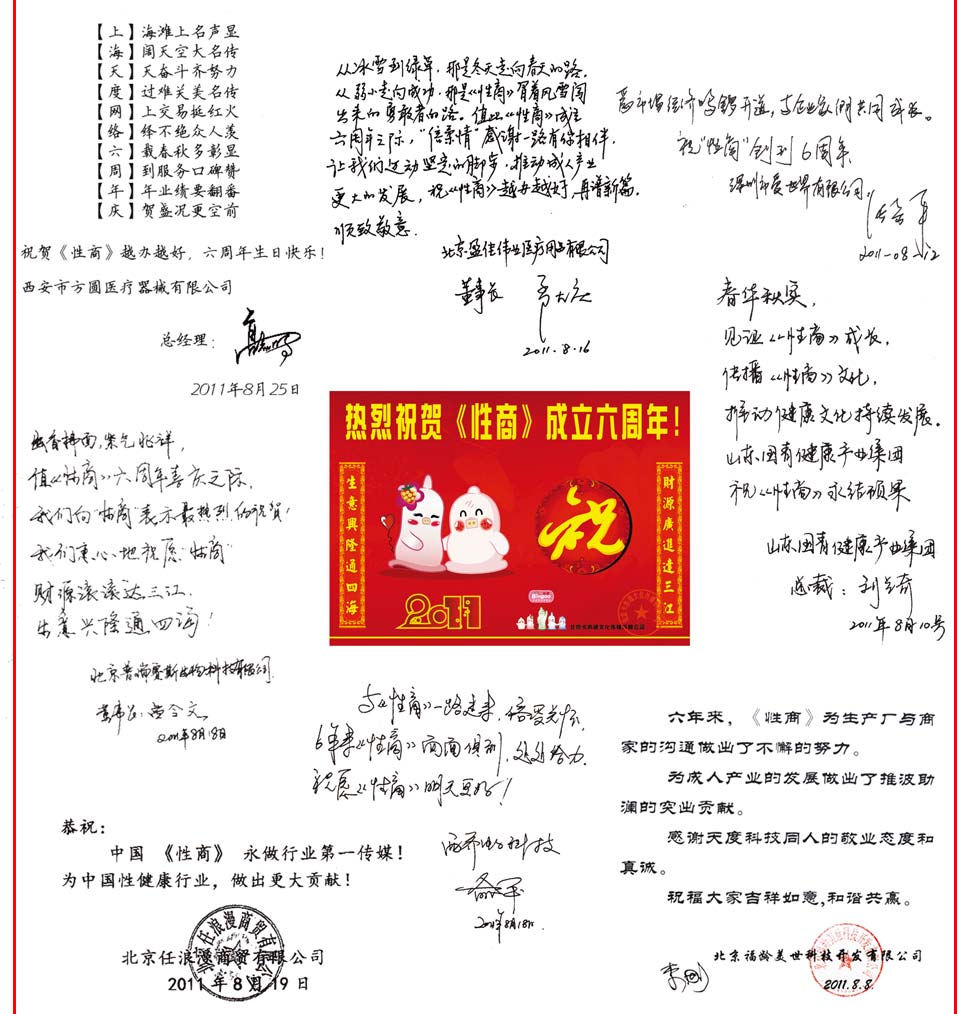 【上】海滩上名声显
【海】阔天空大名传
【天】天奋斗齐努力
【度】过难关美名传
【网】上交易挺红火
【络】绎不绝众人羡
【六】载春秋多彰显
【周】到服务口碑赞
【年】年业绩要翻番
【庆】贺盛况更空前
祝贺《性商》越办越好，六周年生日快乐！
西安市方圆医疗器械有限公司
总经理：
2011年8月25日
从冰雪到绿草，那是冬天走向春天的路.
从弱小走向成功，那是《性商》冒着风雪闯
出来的勇敢者的路。值此《性商》成立
六周年之际，"倍柔情"感谢一路有你相伴，
让我们迈动坚定的脚步，推动成人产业
更大的发展，祝《性商》越办越好，再谱新篇.
顺致敬意.
北京盈佳伟业医疗用品有限公司
董事长
2011.8.16
为市场经济鸣锣开道，与企业家们共同成长。
祝"性商"创刊6周年
深圳市爱世界有限公司
2011-08-12
春华秋实，
见证《性商》成长，
传播《性商》文化，
推动健康文化持续发展。
山东国青健康产业集团
祝《性商》永结硕果
山东国青健康产业集团
总裁：
2011年8月10号
热烈祝贺《性商》成立六周年！
生意興隆通四海
财源廣進達三江
祝
2011
Bingoo
幽香拂面，紫气兆祥，
值《性商》六周年喜庆之际，
我们向"性商"表示最热烈的祝贺！
我们衷心地祝愿"性商"
财源滚滚达三江.
生意兴隆通四海！
董事长：
2011年8月18日
与《性商》一路走来，倍受关怀，
6年来《性商》商商俱到，处处给力.
祝愿《性商》明天更好！
科技
2011年8月18日.
恭祝：
中国 《性商》 永做行业第一传媒！
为中国性健康行业，做出更大贡献！
北京任浪漫商贸有限公司
2011年8月19日
六年来，《性商》为生产厂与商
家的沟通做出了不懈的努力。
为成人产业的发展做出了推波助
澜的突出贡献。
感谢天度科技同人的敬业态度和
真诚。
祝福大家吉祥如意，和谐共赢。
北京福龄美世科技开发有限公司
2011.8.8.